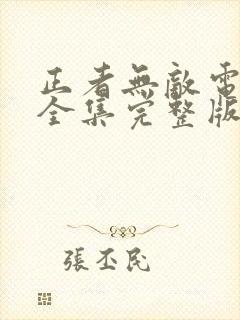 正者無敵電
全集完整版
張丕民